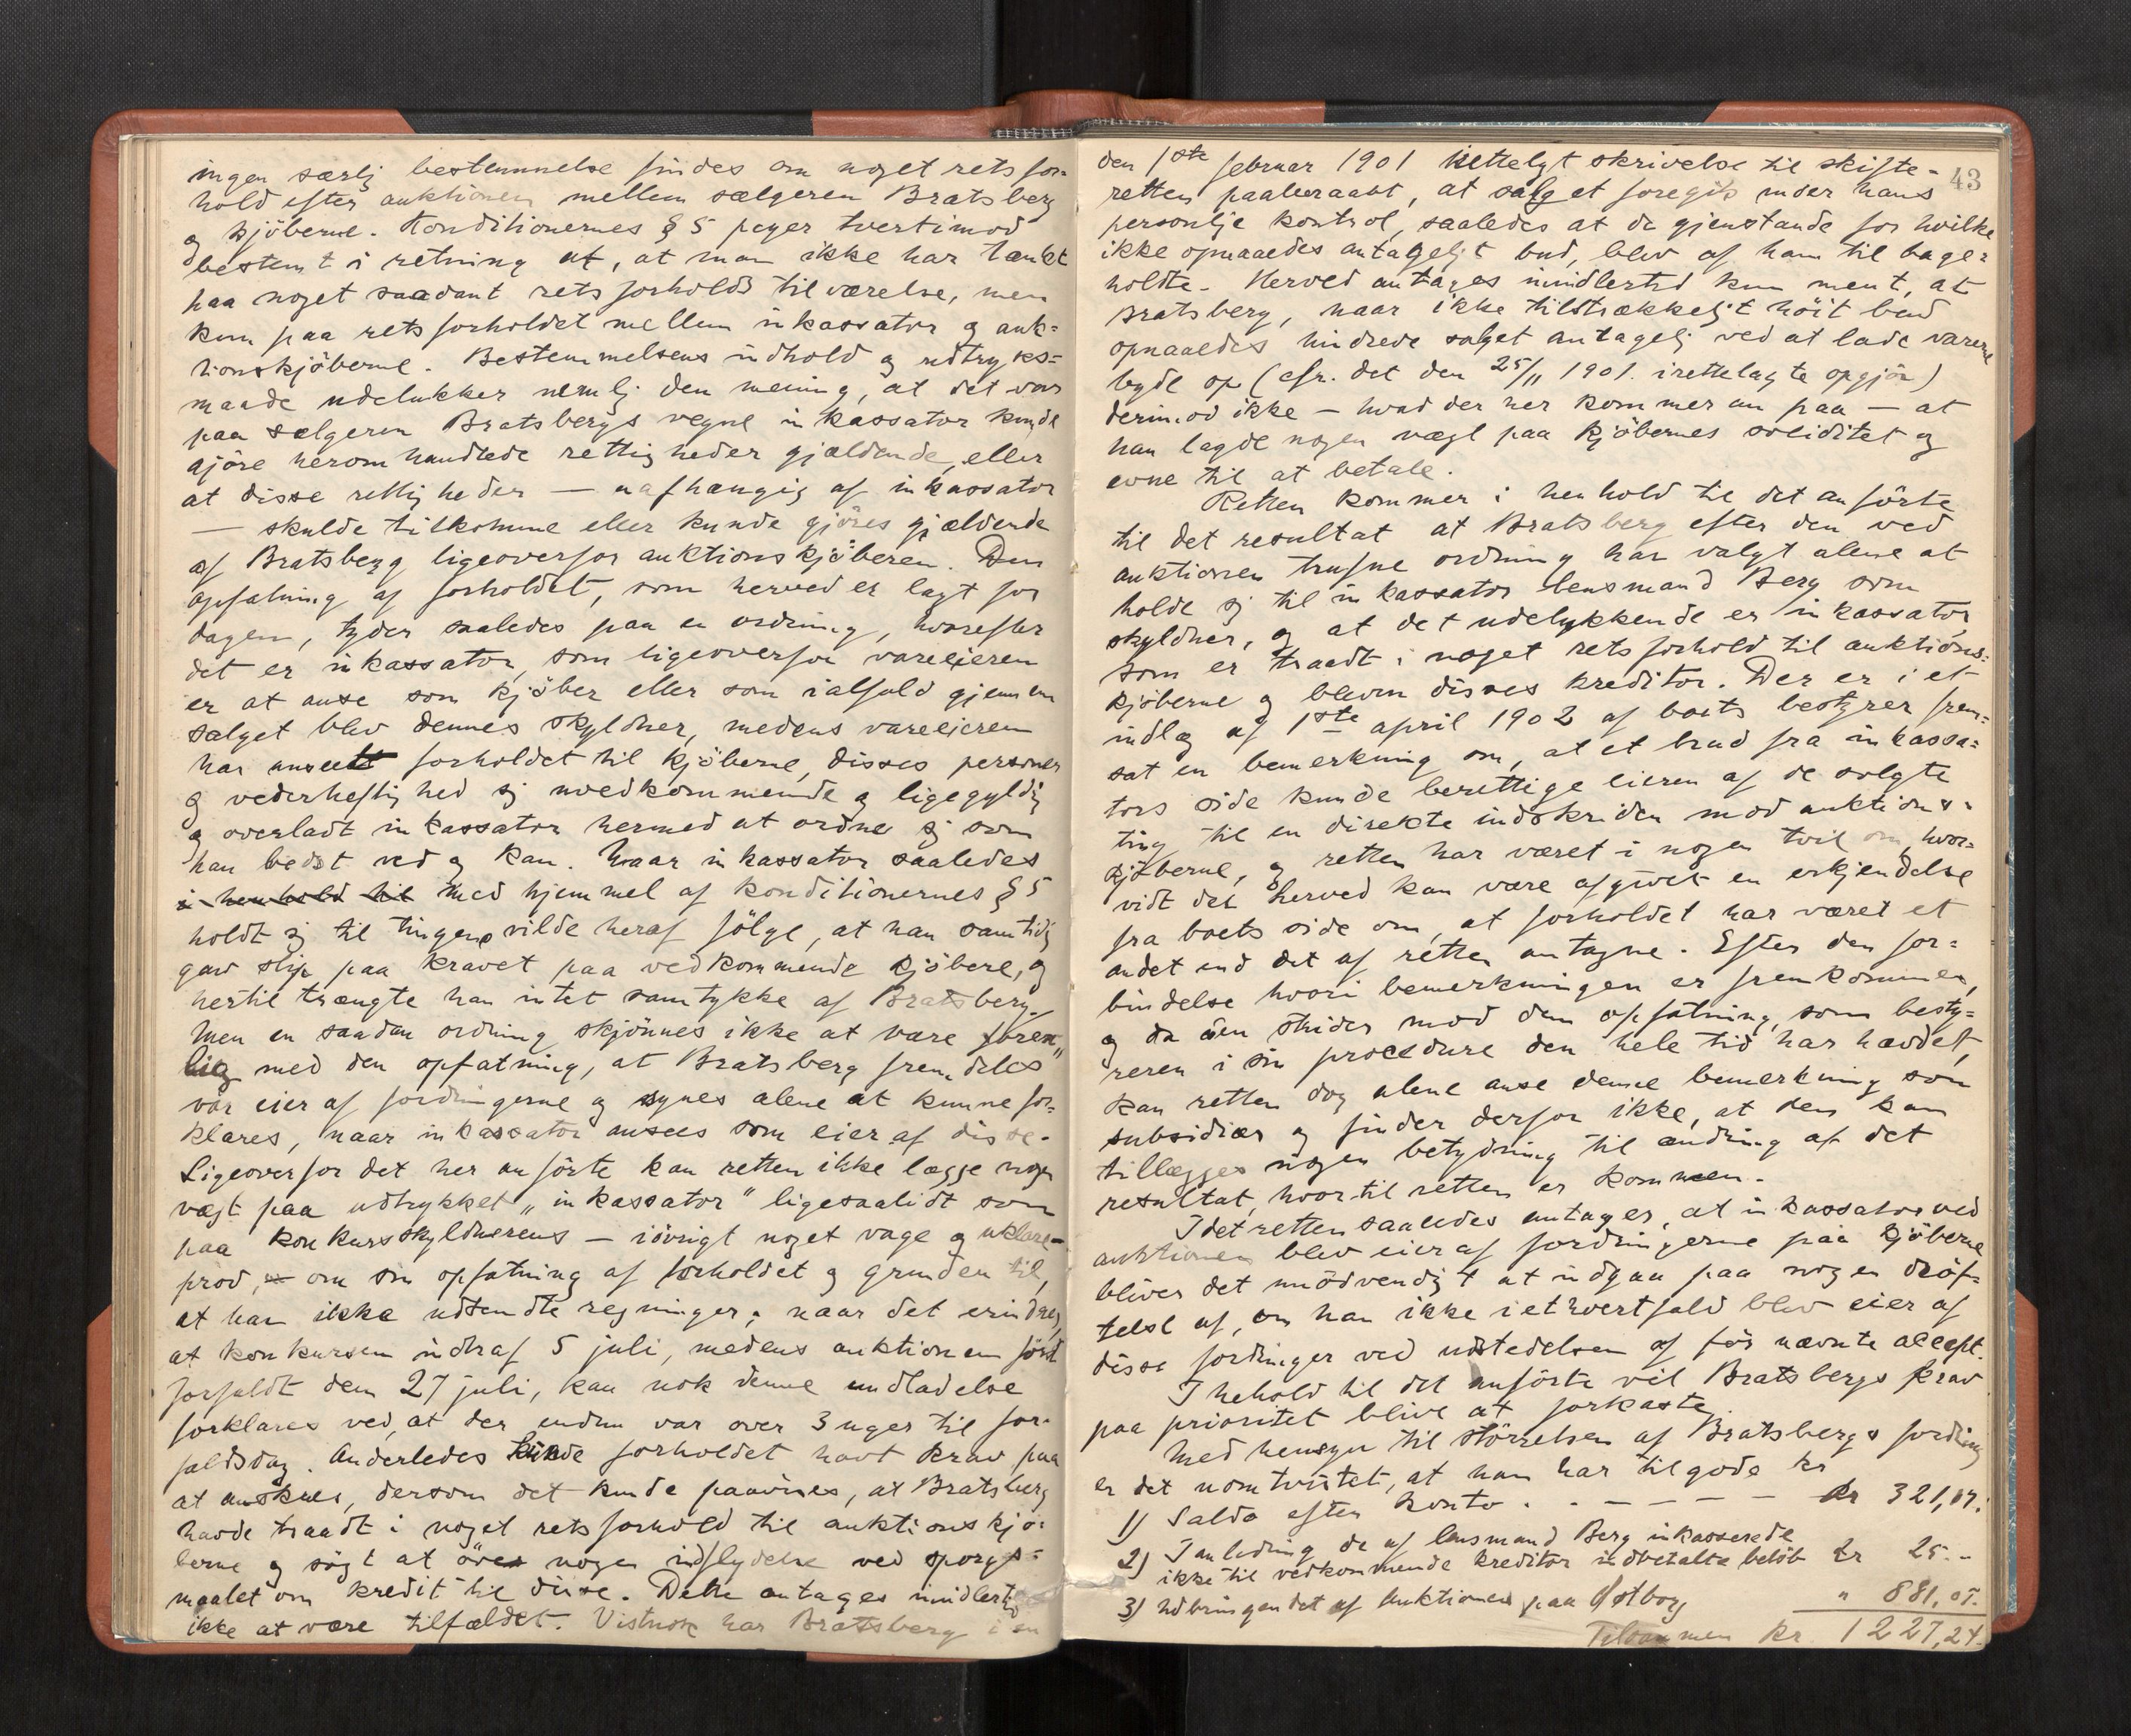 ingen særlig bestemmelse findes om noget retsfor-
hold efter auktionen mellem sælgeren Bratsberg
og kjöberne. Konditionernes § 5 peger tvertimod
bestemt i retning af, at man ikke har tænkt
paa noget saadant retsforholds tilværelse, men
kun paa retsforholdet mellem inkassator og auk-
tionskjöberne. Bestemmelsens indhold og udtryks-
maade udelukker nemlig den mening, at det var
paa sælgeren Bratsbergs vegne inkassator kunde
gjöre heromhandlede rettigheder gjældende, eller
at disse rettigheder — uafhængig af inkassator
— skulde tilkomme eller kunde gjöres gjældende
af Bratsberg ligeoverfor auktionskjöberen. Den
opfatning af forholdet, som herved er lagt for
dagen, tyder saaledes paa en ordning, hvorefter
det er inkassator, som ligeoverfor vareeieren
er at anse som kjöber eller som ialfald gjennem
salget blev dennes skyldner, medens vareeieren
har anseet forholdet til kjöberne, disses personer
og vederheftighed sig uvedkommende og ligegyldig
og overladt inkassator hermed at ordne sig som
han bedst ved og kan. Naar inkassator saaledes
i henhold til med hjemmel af konditionernes § 5
holdt sig til tingene vilde heraf fölge, at han samtidig
gav slip paa kravet paa vedkommende kjöbere, og
hertil trængte han intet samtykke af Bratsberg.
Men en saadan ordning skjönnes ikke at være foren-
lig med den opfatning, at Bratsberg fremdeles
var eier af fordringerne og synes alene at kunne for-
klares, naar inkassator ansees som eier af disse.
Ligeoverfor det her anförte kan retten ikke lægge nogen
vægt paa udtrykket „inkassator" ligesaalidt som
paa konkursskyldnerens — iövrigt noget vage og uklare —
prov, om sin opfatning af forholdet og grunden til,
at han ikke udsendte regninger; naar det erindres,
at konkursen indtraf 5 juli, medens auktionen först
forfaldt den 27 juli, kan nok denne undladelse
forklares ved, at der endnu var over 3 uger til for-
faldsdag. Anderledes kunde forholdet havt krav paa
at ansees, dersom det kunde paavises, at Bratsberg
havde traadt i noget retsforhold til auktionskjö-
berne og sögt at öve nogen indflydelse ved spörgs-
maalet om kredit til disse. Dette antages imidlertid
ikke at være tilfældet. Vistnok har Bratsberg i en
43
den 1ste februar 1901 irettelagt skrivelse til skifte-
retten paaberaabt, at salget foregik under hans
personlige kontrol, saaledes at de gjenstande for hvilke
ikke opnaaedes antageligt bud, blev af ham tilbage-
holdte. Herved antages imidlertid kun ment, at
Bratsberg, naar ikke tilstrækkeligt höit bud
opnaaedes hindrede salget antagelig ved at lade varerne
byde op (cfr. det den 25/11 1901. irettelagte opgjör)
derimod ikke — hvad der her kommer an paa — at
han lagde nogen vægt paa kjöbernes soliditet og
evne til at betale.
Retten kommer i henhold til det anförte
til det resultat at Bratsberg efter den ved
auktionen trufne ordning har valgt alene at
holde sig til inkassator lensmand Berg som
skyldner, og at det udelukkende er inkassator,
som er traadt i noget retsforhold til auktions-
kjöberne og bleven disses kreditor. Der er i et
indlæg af 1ste april 1902 af boets bestyrer frem-
sat en bemerkning om, at et brud fra inkassa-
tors side kunde berettige eieren af de solgte
ting til en direkte indskriden mod auktions-
kjöberne, og retten har været i nogen tvil om, hvor-
vidt det herved kan være afgivet en erkjendelse
fra boets side om, at forholdet har været et
andet end det af retten antagne. Efter den for-
bindelse hvori bemerkningen er fremkommen,
og da den strider mod den opfatning, som besty-
reren i sin procedure den hele tid har hævdet,
kan retten dog alene anse denne bemerkning som
subsidiær og finder derfor ikke, at den kan
tillægges nogen betydning til ændring af det
resultat, hvortil retten er kommen.
Idet retten saaledes antager, at inkassator ved
auktionen blev eier af fordringerne paa kjöberne
bliver det unödvendigt at indgaa paa nogen dröf-
telse af, om han ikke i ethvert fald blev eier af
disse fordringer ved udstedelsen af för nævnte accept.
I hehold til det anförte vil Bratsbergs krav
paa prioritet blive at forkaste.
Med hensyn til störrelsen af Bratsbergs fordring
er det uomtvistet, at han har tilgode kr
1) Saldo efter konto . . — — — — — kr 321,17.
2) I anledning de af lensmand Berg inkasserede
ikke til vedkommende kreditor indbetalte belöb kr 25.-
3) Udbringendet af Auktionen paa Østborg " 881,07.
Tilsammen kr. 1227,24.